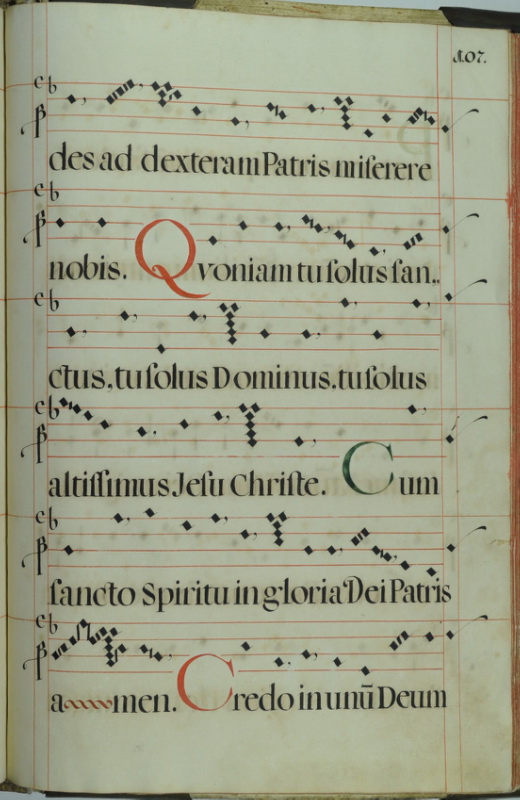 107.
des ad dexteram Patris miserere
nobis. Quoniam tu solus san..
ctus, tu solus Dominus. tu solus
altissimus Jesu Christe. Cum
sancto Spiritu in gloria Dei Patris
a men. Credo in unũ Deum